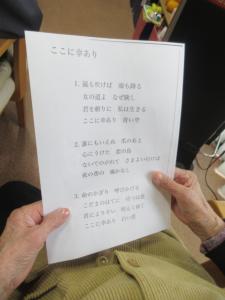 ここに幸あり
1. 嵐も吹けば 雨も降る
女の道よ なぜ険し
君を頼りに 私は生きる
ここに幸あり 青い空
2. 誰にもいえぬ 爪のあと
心にうけた 恋の鳥
ないてのがれて さまよいゆけば
夜の巷の 風かなし
3. 命のかぎり 呼びかける
こだまのはてに 待つは誰
君によりそい 明るく仰ぐ
ここに幸あり 白い雲